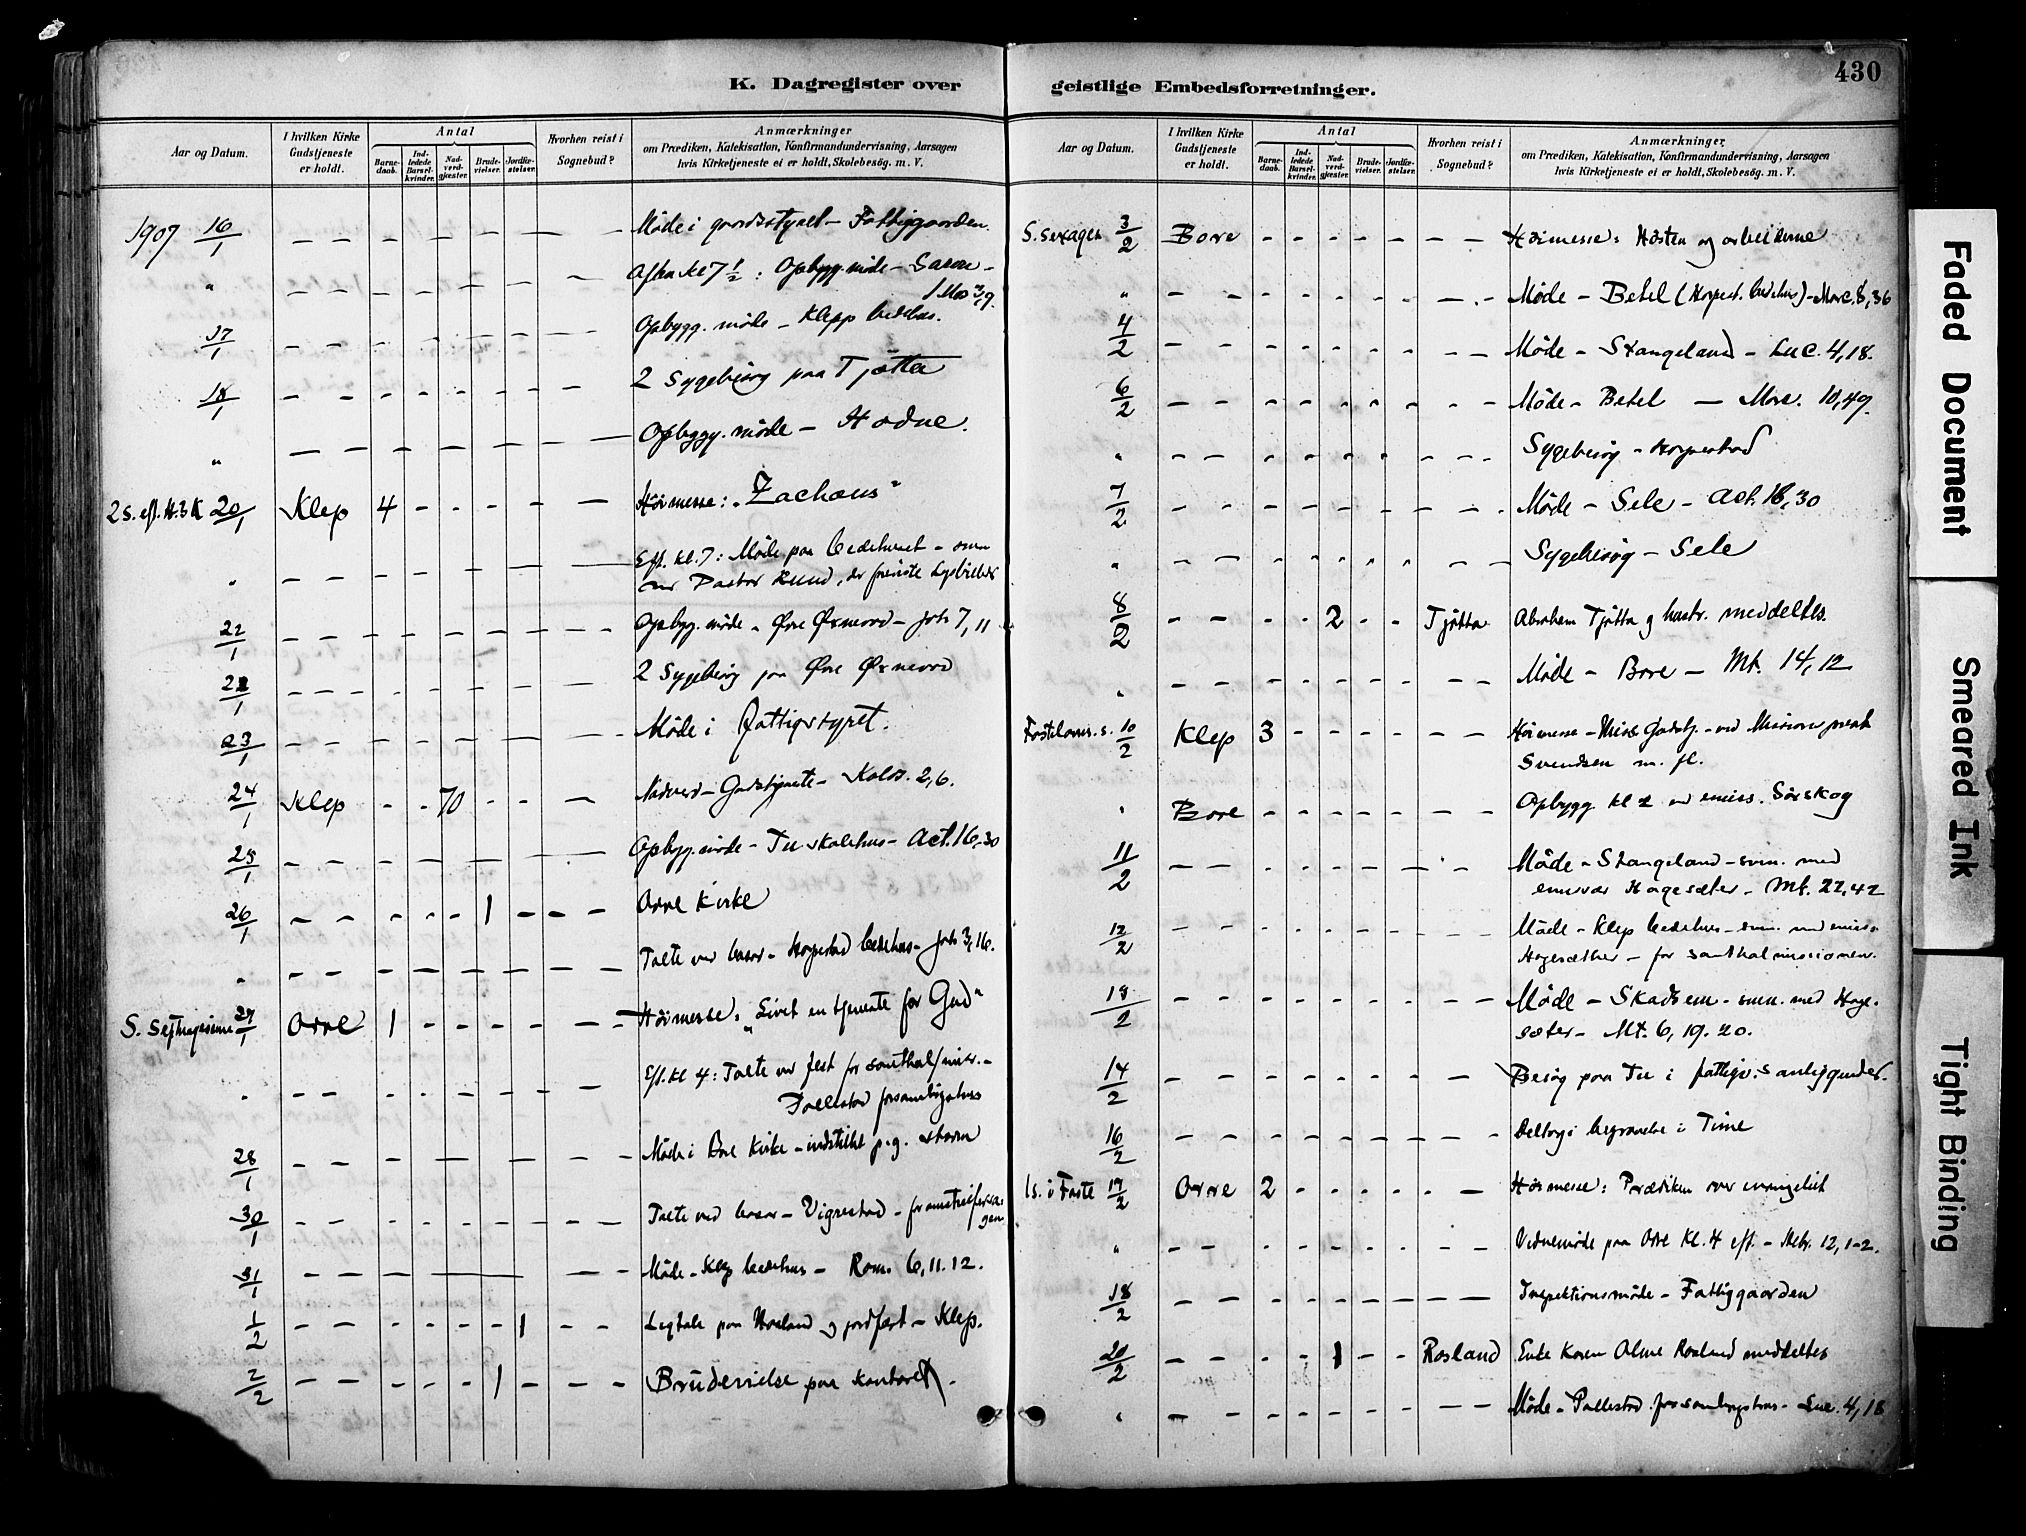 K. Dagregister over geistlige Embedsforretninger.
430
Aar og Datum. | I hvilken Kirke Gudstjeneste er holdt. | Antal | Barnedaab. | Indledede Barselkvinder. | Nadverdgjæster. | Brudevielser. | Jordfæstelser. | Hvorhen reist i Sognebud? | Anmærkninger om Prædiken, Katekisation, Konfirmandundervisning, Aarsagen hvis Kirketjeneste ei er holdt, Skolebesög. m. V.
1907 16/1 Møde i Fattiggaarden.
" Aften kl 7 1/2 : Opbygg. møde – Saron –
1 Mos 3,9.
17/1 Opbygg. møde – Klepp bedehus.
18/1 2 Sygebesøg paa Tjøtta
" Opbygg. møde – Hodne.
2 S. eft. H.3 K 20/1 Klep 4 Høimesse: „Zachæus"
" Eft. kl. 7: Møde paa bedehuset – sm
Pastor Lund, Lysbilleder
22/1 Opbyg. møde – Øvre Øxnevad – Joh 7, 11
22/1 2 Sygebesøg paa Øvre Øxnevad
23/1 Møde i Fattigstyret.
24/1 Klep 70 Nadverd – Gudstjeneste – Kolos. 2,6.
25/1 Opbyg. møde – Tu skolehus – Act. 16,30
26/1 1 Orre Kirke
" Talte ved basar – Horpestad bedehus – Joh 3,16.
S. Septuagesima 27/1 Orre 1 Høimesse: „Livet en tjeneste for Gud"
" Eft. kl 4: Talte ved fest for santhalmiss. –
Pollestad forsamlingshus
28/1 Møde i Bore Kirke – indstillet p. g. storm
30/1 Talte ved basar – Vigrestad –
31/1 Møde – Klep bedehus – Rom. 6, 11. 12.
1/2 1 Ligtale paa og jordfæst – Klep.
2/2 1 Brudevielse paa kontoret.
K. Dagregister over geistlige Embedsforretninger.
Aar og Datum. | I hvilken Kirke Gudstjeneste er holdt. | Antal | Barnedaab. | Indledede Barselkvinder. | Nadverdgjæster. | Brudevielser. | Jordfæstelser. | Hvorhen reist i Sognebud? | Anmærkninger om Prædiken, Katekisation, Konfirmandundervisning, Aarsagen hvis Kirketjeneste ei er holdt, Skolebesög. m. V.
S. Sexages 3/2 Bore Høimesse: Høsten og arbeiderne
" Møde – Betel (Horpest. bedehus) – Marc. 8,36
4/2 Møde – Stangeland – Luc. 4,18.
6/2 Møde – Betel — Marc. 10,49.
" Sygebesøg – Horpestad
7/2 Møde – Sele – Act. 16,30
" Sygebesøg – Sele
8/2 2 Tjøtta Abraham Tjøtta og hustr. meddeltes.
" Møde – Bore – Mt. 14, 12
Fastelavns. s. 10/2 Klep 3 Høimesse – Miss Gudstj. – ved Missionsprest
Svendsen m. fl.
" Bore Opbygg kl 2 ved emiss. Sørskog
11/2 Møde – Stangeland – sm. med
emissær Hagesæter – Mt. 22, 42
12/2 Møde – Klep bedehus – sm. med emiss.
Hagesæther – for santhalmissionen.
13/2 Møde – Skadsem – sm. med Hage-
sæter – Mt. 6, 19. 20.
14/2 Besøg paa Tu i fattigv.s anliggender.
16/2 Deltog i begravelse i Time
1 s. i Faste 17/2 Orre 2 Høimesse: Prædiken over evangeliet
" Vidnemøde paa Orre kl. 4 eft. – Hebr. 12, 1-2.
18/2 Inspektionsmøde – Fattiggaarden
20/2 1 Rosland Enke Karen Oline Rosland meddeltes
" Møde – Pollestad forsamlingshus – Luc. 4, 18
Faded Document
Smeared Ink
Tight Binding